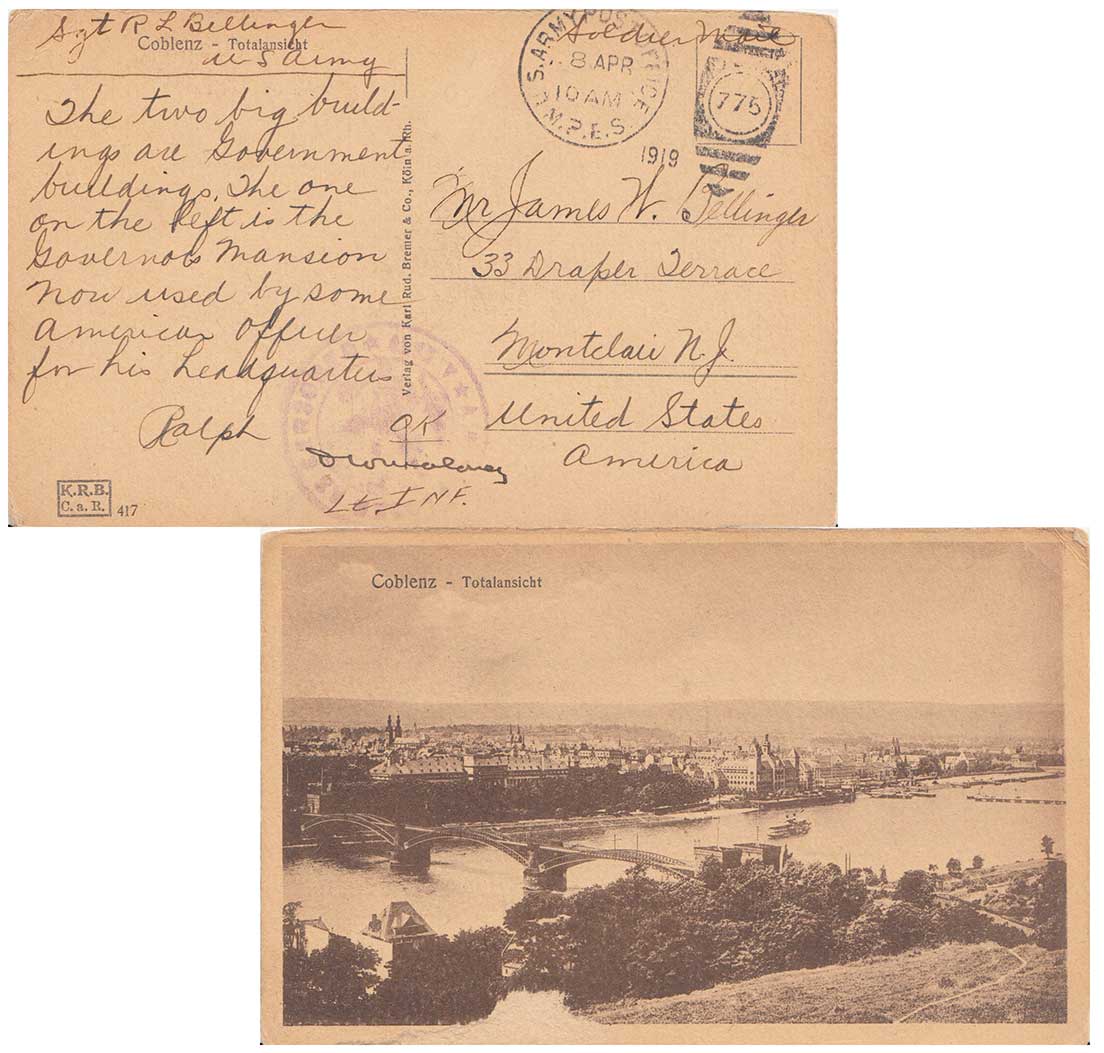 Sgt R L Bellinger
Coblenz - Totalansicht
U S Army
The two big build-
ings are Government
buildings. The one
on the left is the
Governors Mansion
now used by some
American Officer
for his headquarters
Ralph
OK
Lt. INF.
K.R.B.
C.a.R.
417
Verlag von Karl Rud. Bremer & Co., Köln a. Rh.
Soldiers Mail
U.S. ARMY POST OFFICE
8 APR
10 AM
M.P.E.S.
1919
775
Mr James W. Bellinger
33 Draper Terrace
Montclair N.J.
United States
America
Coblenz - Totalansicht